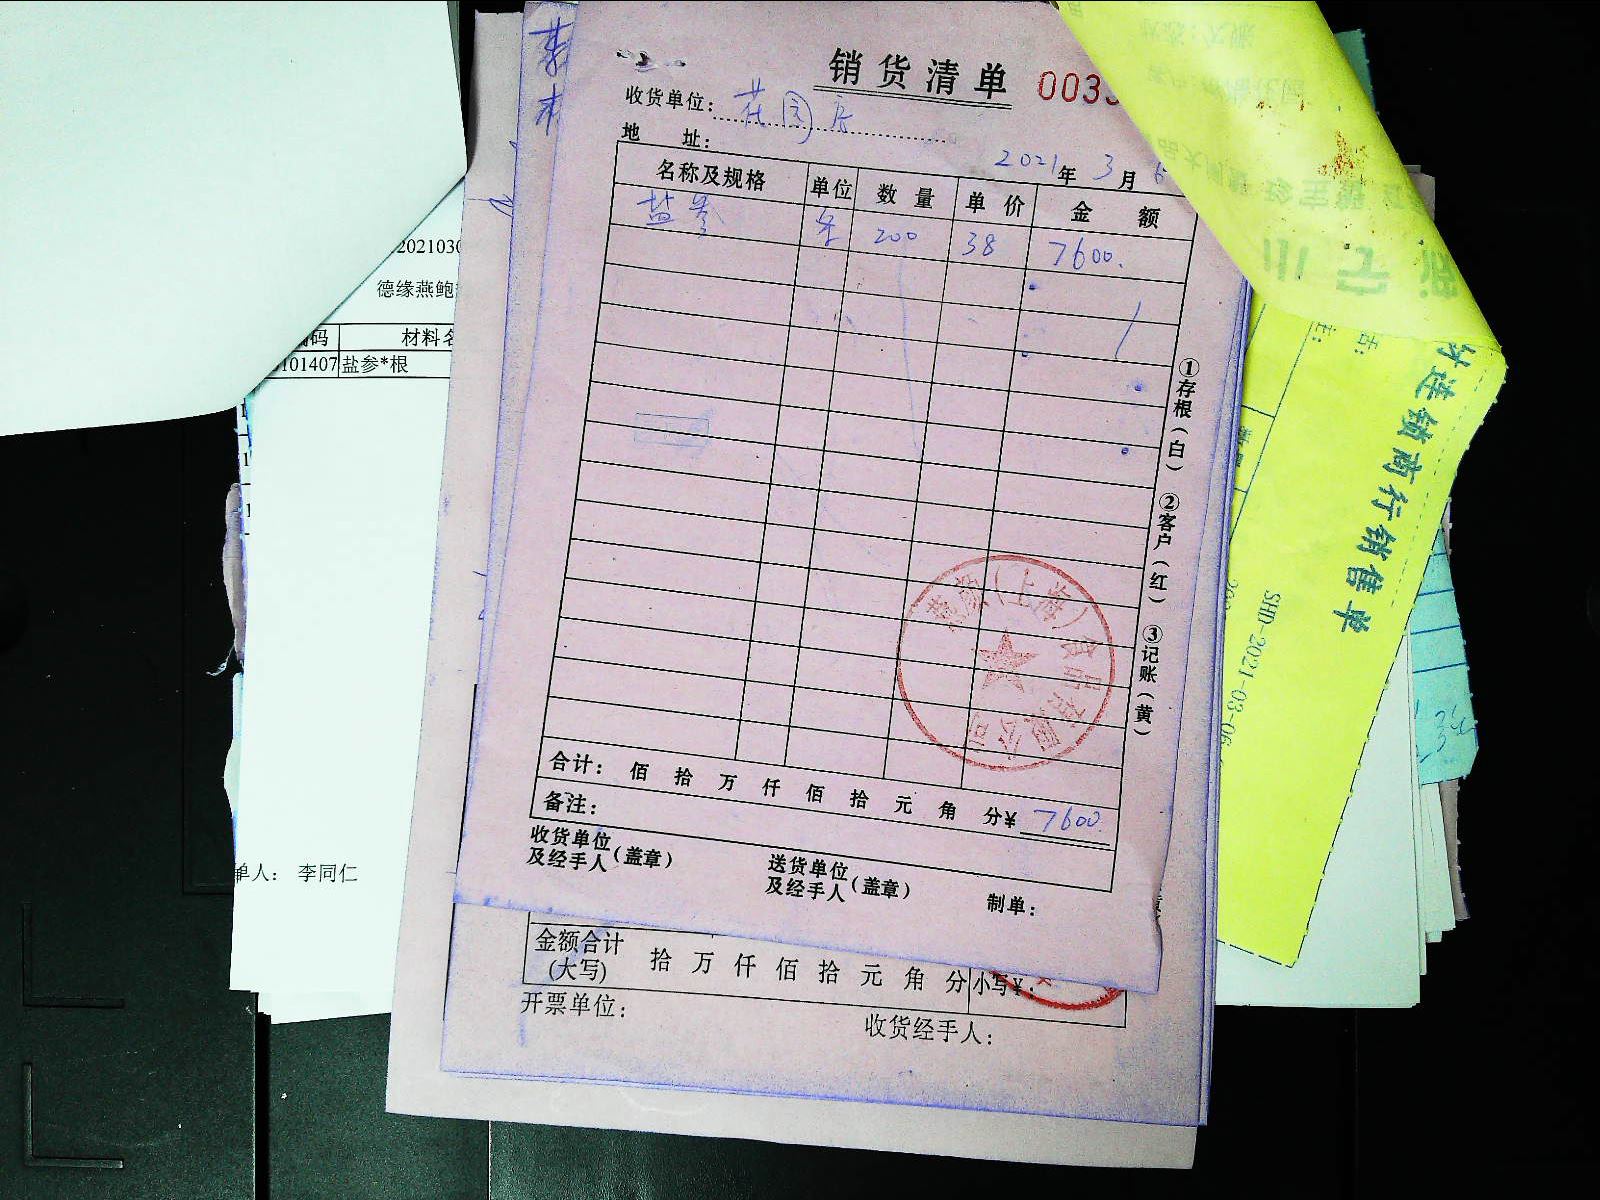 销货清单 0033
收货单位: 花园店
地 址:
2021年 3月 6
名称及规格 单位 数量 单价 金额
盐参 200 38 7600.
合计: 佰 拾 万 仟 佰 拾 元 角 分¥ 7600.
备注:
收货单位
及经手人(盖章)
送货单位
及经手人(盖章)
制单:
①存根(白) ②客户(红) ③记账(黄)
(上海)
有限公司
金额合计
(大写) 拾 万 仟 佰 拾 元 角 分 小写¥:
开票单位:
收货经手人:
2021030
德缘燕鲍
码 材料名
101407 盐参*根
单人: 李同仁
连锁商行销售单
SHD-2021-03-06